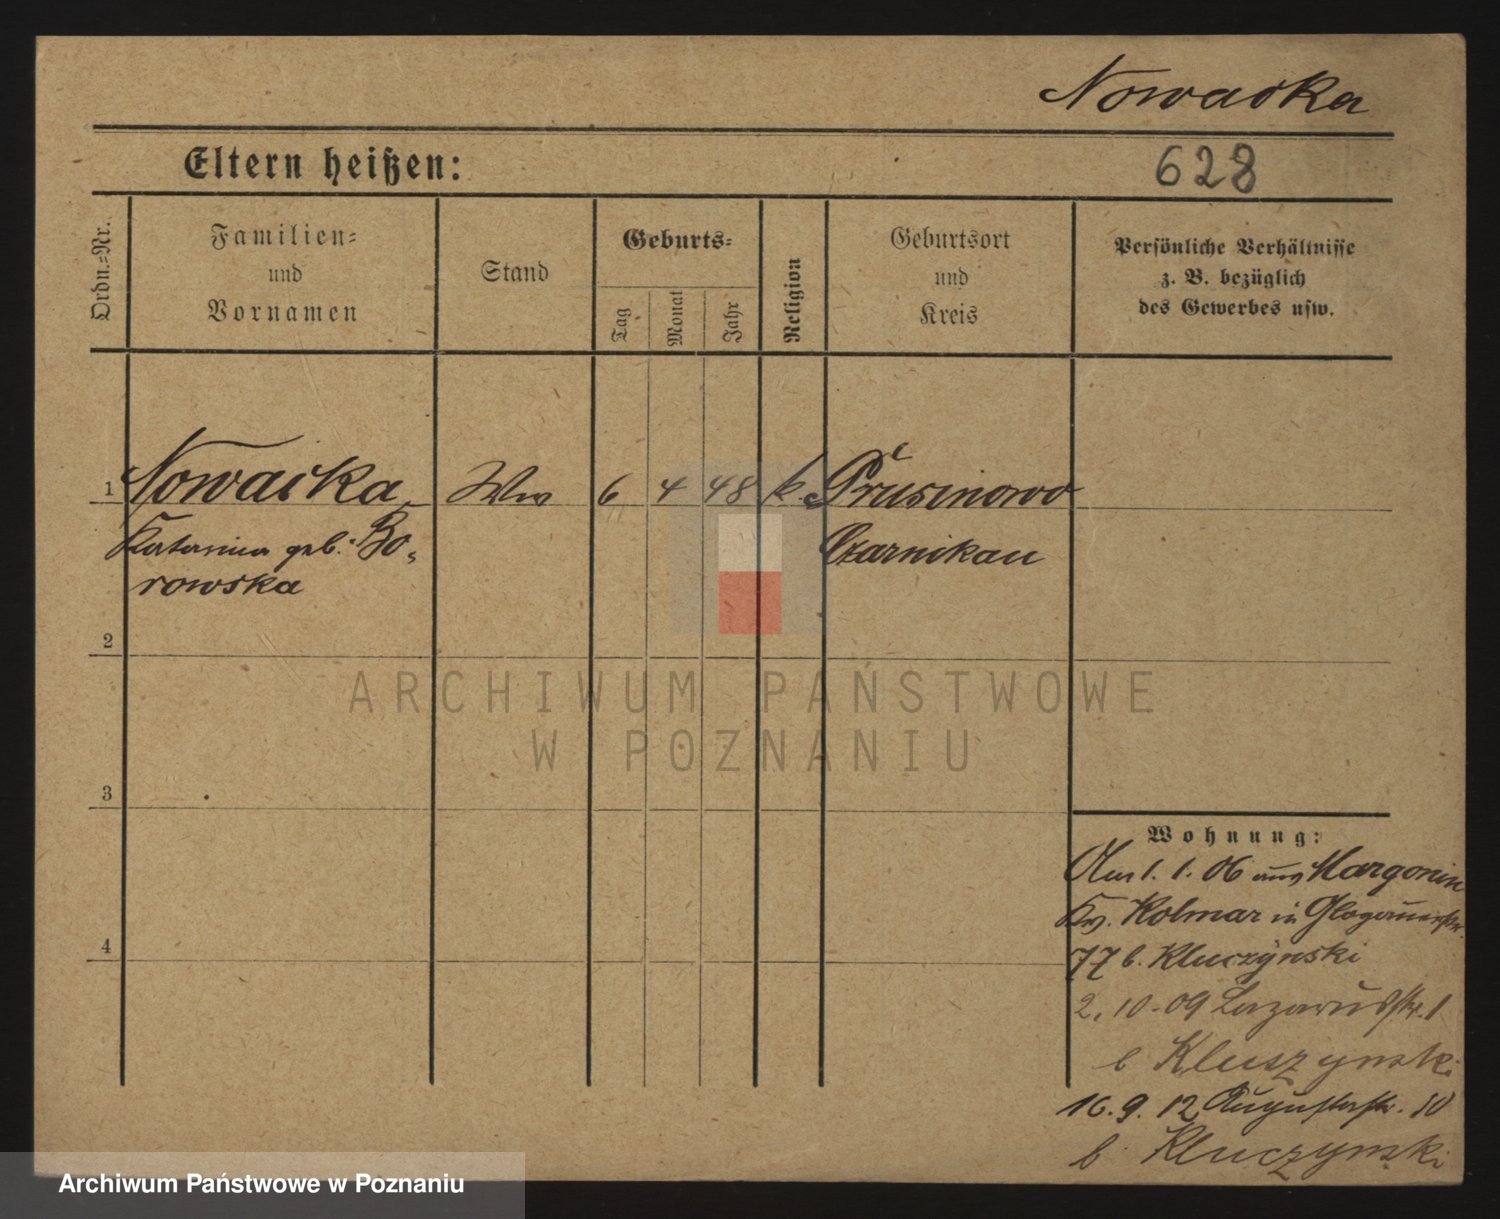 Nowacka
Eltern heißen:
628
Ordn.-Nr.
Familien-
und
Vornamen
Stand
Geburts-
Tag
Monat
Jahr
Religion
Geburtsort
und
Kreis
Persönliche Verhältnisse
z. B. bezüglich
des Gewerbes usw.
1 Nowacka Ww 6 4 48 k. Prusinowo
Katarina geb. Bo- Czarnikau
rowska
2
3
4
Wohnung:
Am 1. 1. 06 aus Margonin
Kr. Kolmar in Glogauerstr.
77 b. Kluczynski
2. 10. 09 Lazarusstr. 1
b Kluszynski
16. 9. 12 Augustastr. 10
b. Kluczynski
ARCHIWUM PAŃSTWOWE
W POZNANIU
Archiwum Państwowe w Poznaniu